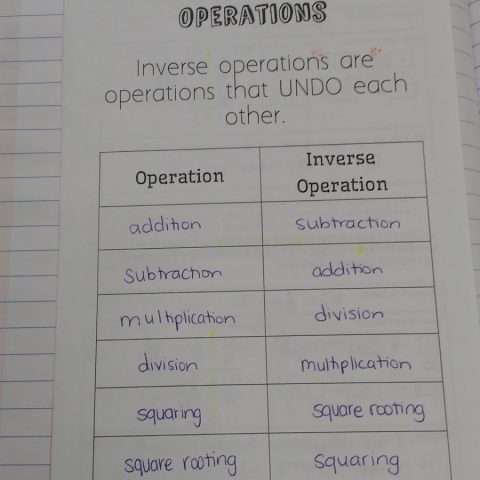 OPERATIONS
Inverse operations are
operations that UNDO each
other.
Operation Inverse Operation
addition subtraction
subtraction addition
multiplication division
division multiplication
squaring square rooting
square rooting squaring